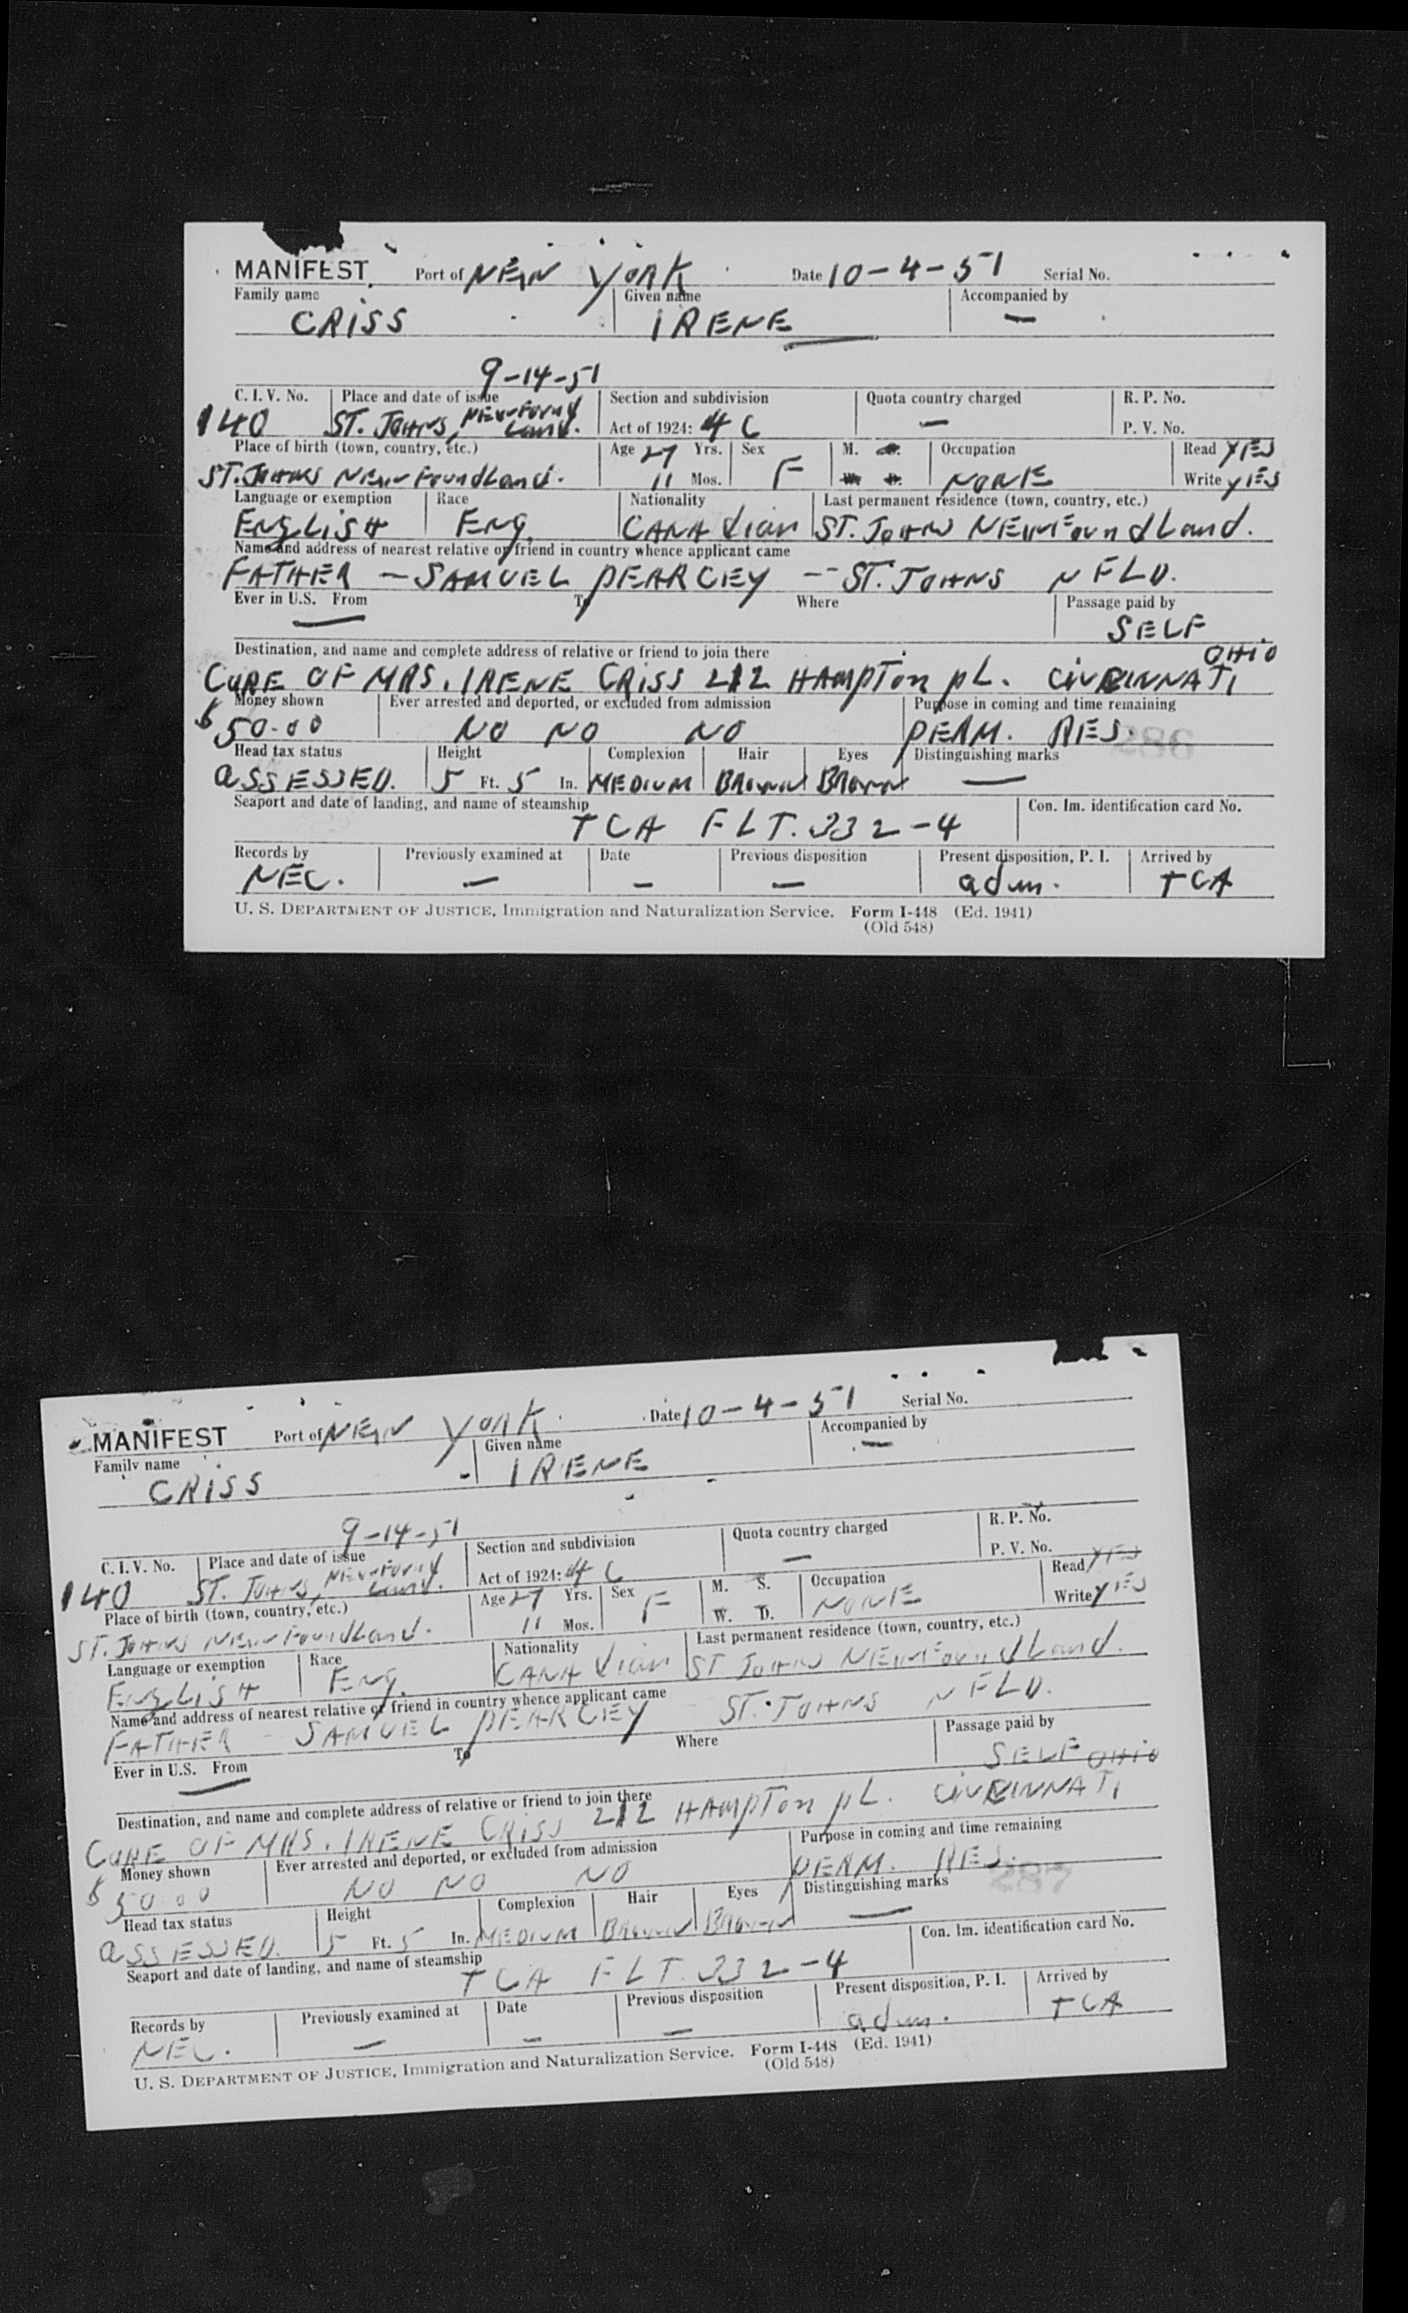 MANIFEST Port of NEW YORK Date 10-4-51 Serial No.
Family name Given name Accompanied by
CRISS IRENE —
9-14-51
C. I. V. No. Place and date of issue Section and subdivision Quota country charged R. P. No.
140 ST. JOHNS, NEWFOUNDLAND. Act of 1924: 4 C — P. V. No.
Place of birth (town, country, etc.) Age 27 Yrs. Sex M. Occupation Read YES
ST. JOHNS NEWFOUNDLAND. 11 Mos. F NONE Write YES
Language or exemption Race Nationality Last permanent residence (town, country, etc.)
ENGLISH ENG. CANADIAN ST. JOHNS NEWFOUNDLAND.
Name and address of nearest relative or friend in country whence applicant came
FATHER — SAMUEL PEARCEY -- ST. JOHNS NFLD.
Ever in U.S. From To Where Passage paid by
— SELF
Destination, and name and complete address of relative or friend to join there OHIO
CARE OF MRS. IRENE CRISS 212 HAMPTON PL. CINCINNATI
Money shown Ever arrested and deported, or excluded from admission Purpose in coming and time remaining
$50.00 NO NO NO PERM. RES.
Head tax status Height Complexion Hair Eyes Distinguishing marks
ASSESSED. 5 Ft. 5 In. MEDIUM BROWN BROWN —
Seaport and date of landing, and name of steamship Con. Im. identification card No.
TCA FLT. 332-4
Records by Previously examined at Date Previous disposition Present disposition, P. I. Arrived by
NEC. — — — adm. TCA
U. S. DEPARTMENT OF JUSTICE, Immigration and Naturalization Service. Form I-448 (Ed. 1941)
(Old 548)
MANIFEST Port of NEW YORK Date 10-4-51 Serial No.
Family name Given name Accompanied by
CRISS IRENE —
9-14-51
C. I. V. No. Place and date of issue Section and subdivision Quota country charged R. P. No.
140 ST. JOHNS, NEWFOUNDLAND. Act of 1924: 4 C — P. V. No.
Place of birth (town, country, etc.) Age 27 Yrs. Sex M. S. Occupation Read YES
ST. JOHNS NEWFOUNDLAND. 11 Mos. F W. D. NONE Write YES
Language or exemption Race Nationality Last permanent residence (town, country, etc.)
ENGLISH ENG. CANADIAN ST JOHNS NEWFOUNDLAND.
Name and address of nearest relative or friend in country whence applicant came
FATHER SAMUEL PEARCEY ST. JOHNS NFLD.
Ever in U.S. From To Where Passage paid by
— SELF OHIO
Destination, and name and complete address of relative or friend to join there
CARE OF MRS. IRENE CRISS 212 HAMPTON PL. CINCINNATI
Money shown Ever arrested and deported, or excluded from admission Purpose in coming and time remaining
$50.00 NO NO NO PERM. RES.
Head tax status Height Complexion Hair Eyes Distinguishing marks
ASSESSED. 5 Ft. 5 In. MEDIUM BROWN BROWN —
Seaport and date of landing, and name of steamship Con. Im. identification card No.
TCA FLT. 332-4
Records by Previously examined at Date Previous disposition Present disposition, P. I. Arrived by
NEC. — — — adm. TCA
U. S. DEPARTMENT OF JUSTICE, Immigration and Naturalization Service. Form I-448 (Ed. 1941)
(Old 548)